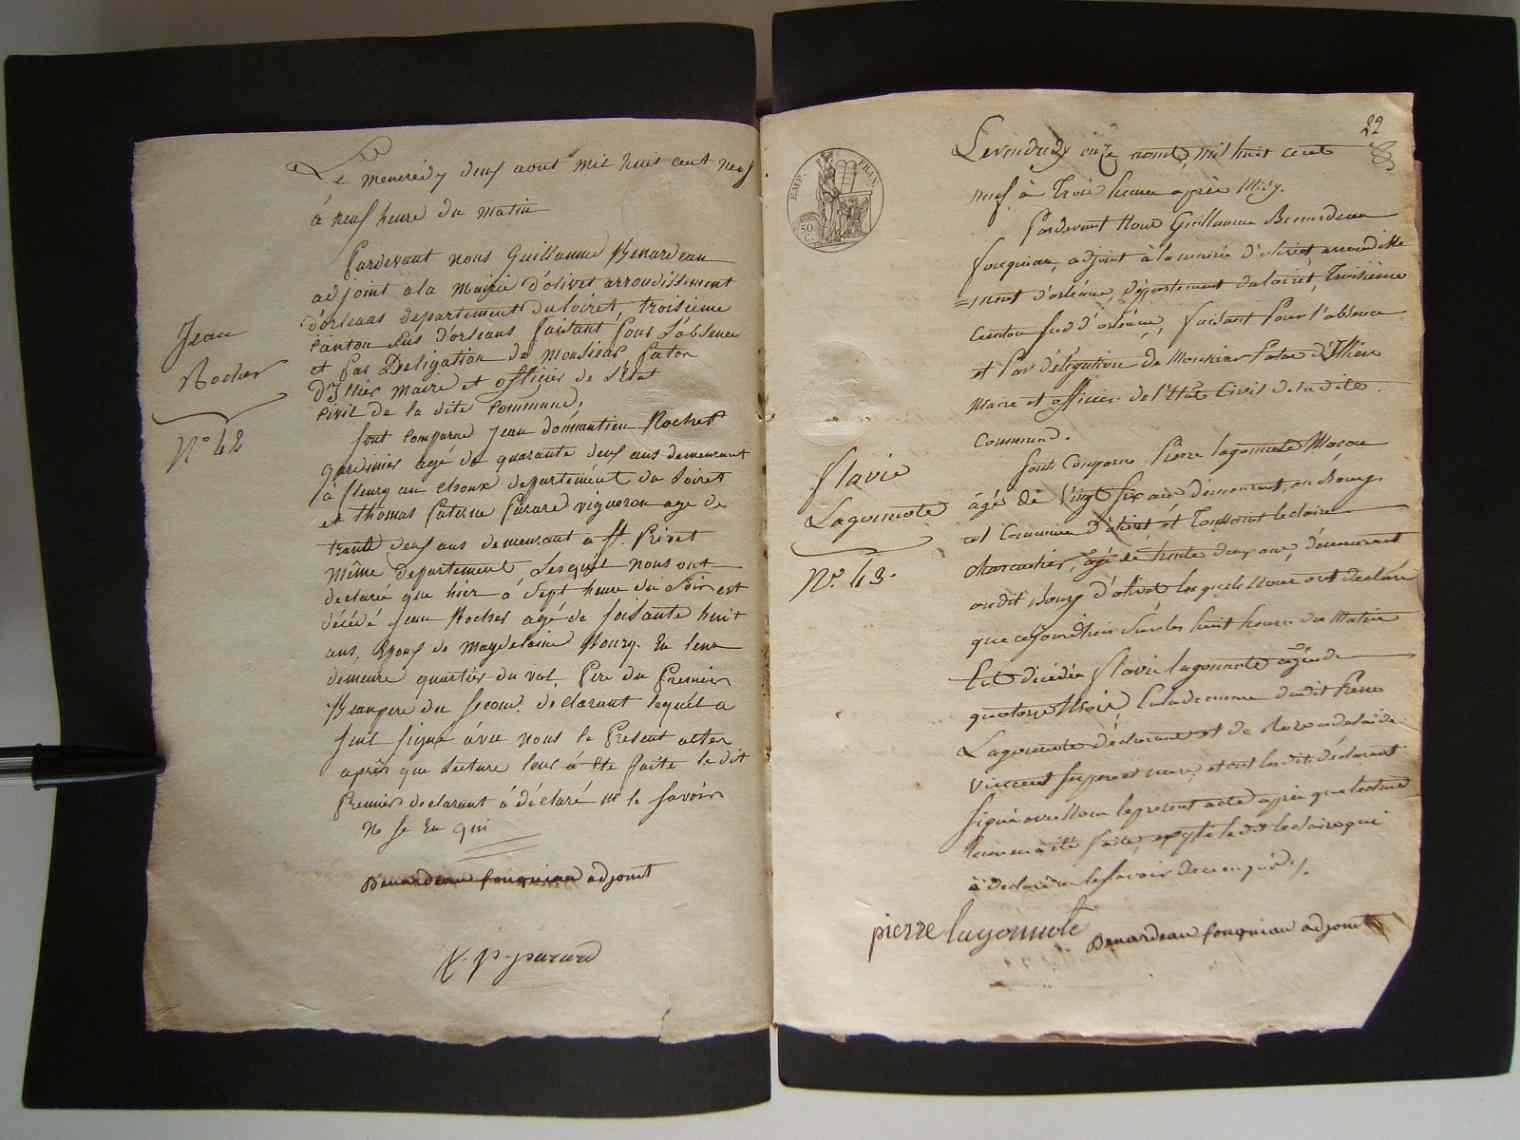 Le mercredy deux aout mil huit cent neuf
à neuf heure du matin
Pardevant nous Guillaume Benardeau
adjoint a la Mairie d'olivet arrondissement
d'orleans departement du loiret, troisieme
Canton sus d'orleans faisant pour l'absence
et par Deligation de Monsieur paton
D'Illier maire et officier de l'Etat
Civil de la dite Commune,
Sont Comparue Jean domantien Rocher
Jardinier agé de quarante deux ans demeurant
à fleury au choux departement du Loiret
et thomas paterne parare vigneron age de
trante deux ans demeurant a St. Privet
même departement Lesquel nous ont
declarée que hier a Sept heure du Soir est
décédé Jean Rocher agé de Soisante huit
ans, Epoux de Magdelaine En leur
demeure quartier du val, Pere du Premier
Beaupere du Second declarant lequél a
seul signé avec nous le Present acte
après que lecture leur à été faite le dit
Premier declarant à déclaré ne le savoir
Jean
Rocher
N° 42
Benardeau adjoint
t. p. parard
22
EMP. FRAN.
50
Le vendredy onze aout, mil huit cent
neuf à Trois heures après Midy.
Pardevant Nous Guillaume Benardeau
adjoint à la mairie d'olivet arrondisse
=ment d'orléans, Département du loiret, Troisième
Canton sud d'orléans, faisant pour l'absence
et par délégation de Monsieur Paton d'Illier
Maire et officier de l'Etat Civil de la dite
Commune.
Sont Comparus Pierre lagonnote Maçon
âgé de Vingt Six ans demeurant, au Bourg
et Commune d'olivet, et Toussaint leclaire
charcutier, agé de trente deux ans, demeurant
audit Bourg d'olivet lesquels Nous ont déclaré
que cejourdhui Sur les huit heures du Matin
Est décédée flavie lagonnote agée de
quatorze Mois, En la demeure dudit Pierre
Lagonnote déclarant et de Rose adelaïde
Vincent ses pere et mere, et ont les dits déclarant
signé avec Nous le present acte après que lecture
leur en a été faite, excepté le dit leclaire qui
a declaré ne le savoir de ce enquis./.
flavie
Lagonnote
N°. 43.
pierre lagonnote
Benardeau adjoint